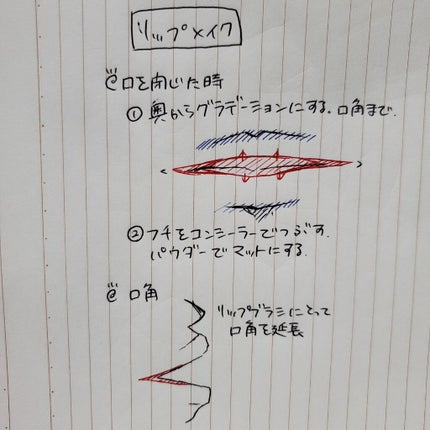 リップメイク
口を閉じた時
① 奥からグラデーションにする。口角まで。
② フチをコンシーラーでつぶす。
パウダーでマットにする。
口角
口角を延長